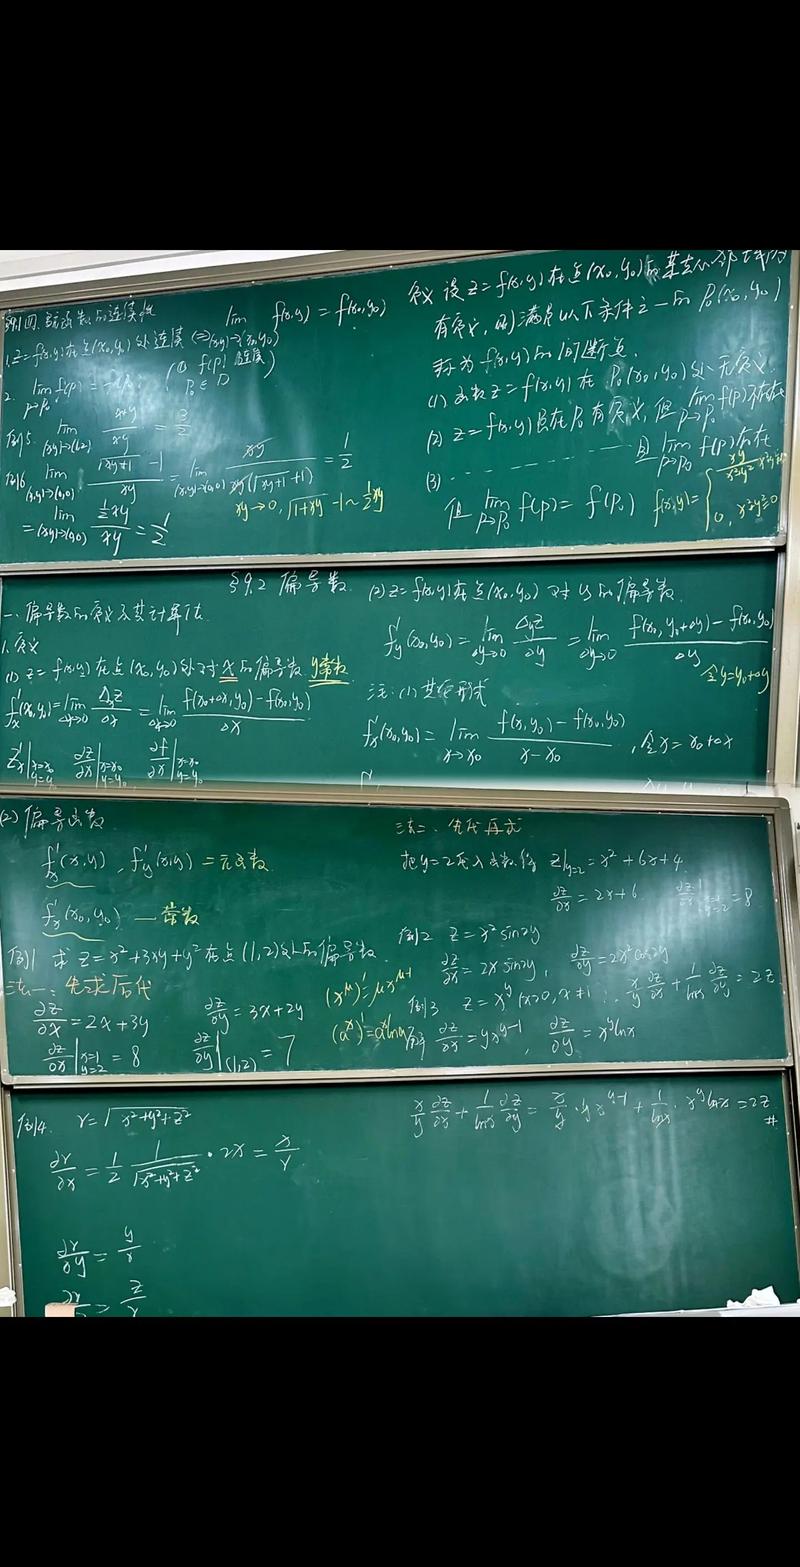 §9.1 四. 多元函数的连续性
1. z=f(x,y)在点(x₀,y₀)处连续 ⇔ lim_{(x,y)→(x₀,y₀)} f(x,y) = f(x₀,y₀)
2. lim_{P→P₀} f(P) = f(P₀) (f(P) 连续 P₀∈D)
例5. lim_{(x,y)→(1,2)} (x+y)/(xy) = 3/2
例6 lim_{(x,y)→(0,0)} (√(xy+1) - 1)/(xy) = lim_{(x,y)→(0,0)} xy/(xy(√(xy+1)+1)) = 1/2
= lim_{(x,y)→(0,0)} (½xy)/(xy) = 1/2
xy→0, √(1+xy) -1 ~ ½xy
定义 设z=f(x,y)在点(x₀,y₀)的某去心邻域内
有定义, 则满足以下条件之一的P₀(x₀,y₀)
称为f(x,y)的间断点.
(1) 函数z=f(x,y)在P₀(x₀,y₀)处无定义.
(2) z=f(x,y)在P₀有定义, 但 lim_{P→P₀} f(P)不存在
(3) - - - - - - 且 lim_{P→P₀} f(P)存在
但 lim_{P→P₀} f(P) = f(P₀) f(x,y)= { xy/(x²+y²) x²+y²≠0
0, x²+y²=0
§9.2 偏导数.
一. 偏导数的定义及其计算法
1. 定义
(1) z=f(x,y)在点(x₀,y₀)处对x的偏导数 y常数
f'ₓ(x₀,y₀) = lim_{Δx→0} Δₓz/Δx = lim_{Δx→0} (f(x₀+Δx,y₀)-f(x₀,y₀))/Δx
z'ₓ|_{x=x₀ y=y₀} ∂z/∂x|_{x=x₀ y=y₀} ∂f/∂x|_{x=x₀ y=y₀}
(2) z=f(x,y)在点(x₀,y₀)对y的偏导数.
f'_y(x₀,y₀) = lim_{Δy→0} Δ_yz/Δy = lim_{Δy→0} (f(x₀,y₀+Δy)-f(x₀,y₀))/Δy
令y=y₀+Δy
注:(1) 其它形式
f'ₓ(x₀,y₀) = lim_{x→x₀} (f(x,y₀)-f(x₀,y₀))/(x-x₀), 令x=x₀+Δx
(2) 偏导函数
f'ₓ(x,y), f'_y(x,y) = 二元函数
f'ₓ(x₀,y₀) — 常数
例1 求 z=x²+3xy+y² 在点(1,2)处的偏导数.
法一: 先求后代
∂z/∂x = 2x+3y ∂z/∂y = 3x+2y
∂z/∂x|_{x=1 y=2} = 8 ∂z/∂y|_{(1,2)} = 7
(x^μ)' = μx^{μ-1}
(a^x)' = a^x ln a
法二. 先代再求
把y=2代入函数得 z|_{y=2} = x²+6x+4
∂z/∂x = 2x+6 ∂z/∂x|_{x=1 y=2} = 8
例2 z=x² sin2y
∂z/∂x = 2x sin2y, ∂z/∂y = 2x² cos2y
例3 z=x^y (x>0, x≠1) x/y ∂z/∂x + 1/lnx ∂z/∂y = 2z
解 ∂z/∂x = yx^{y-1}, ∂z/∂y = x^y lnx
x/y ∂z/∂x + 1/lnx ∂z/∂y = x/y · yx^{y-1} + 1/lnx · x^y lnx = 2z #
例4. r=√(x²+y²+z²)
∂r/∂x = 1/2 1/√(x²+y²+z²) · 2x = x/r
∂r/∂y = y/r
∂r = z/r